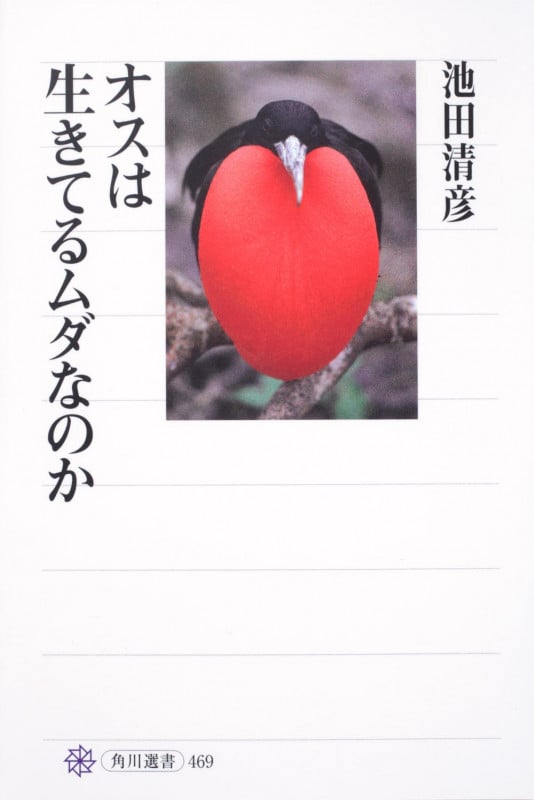 池田清彦
オスは
生きてるムダなのか
角川選書 469